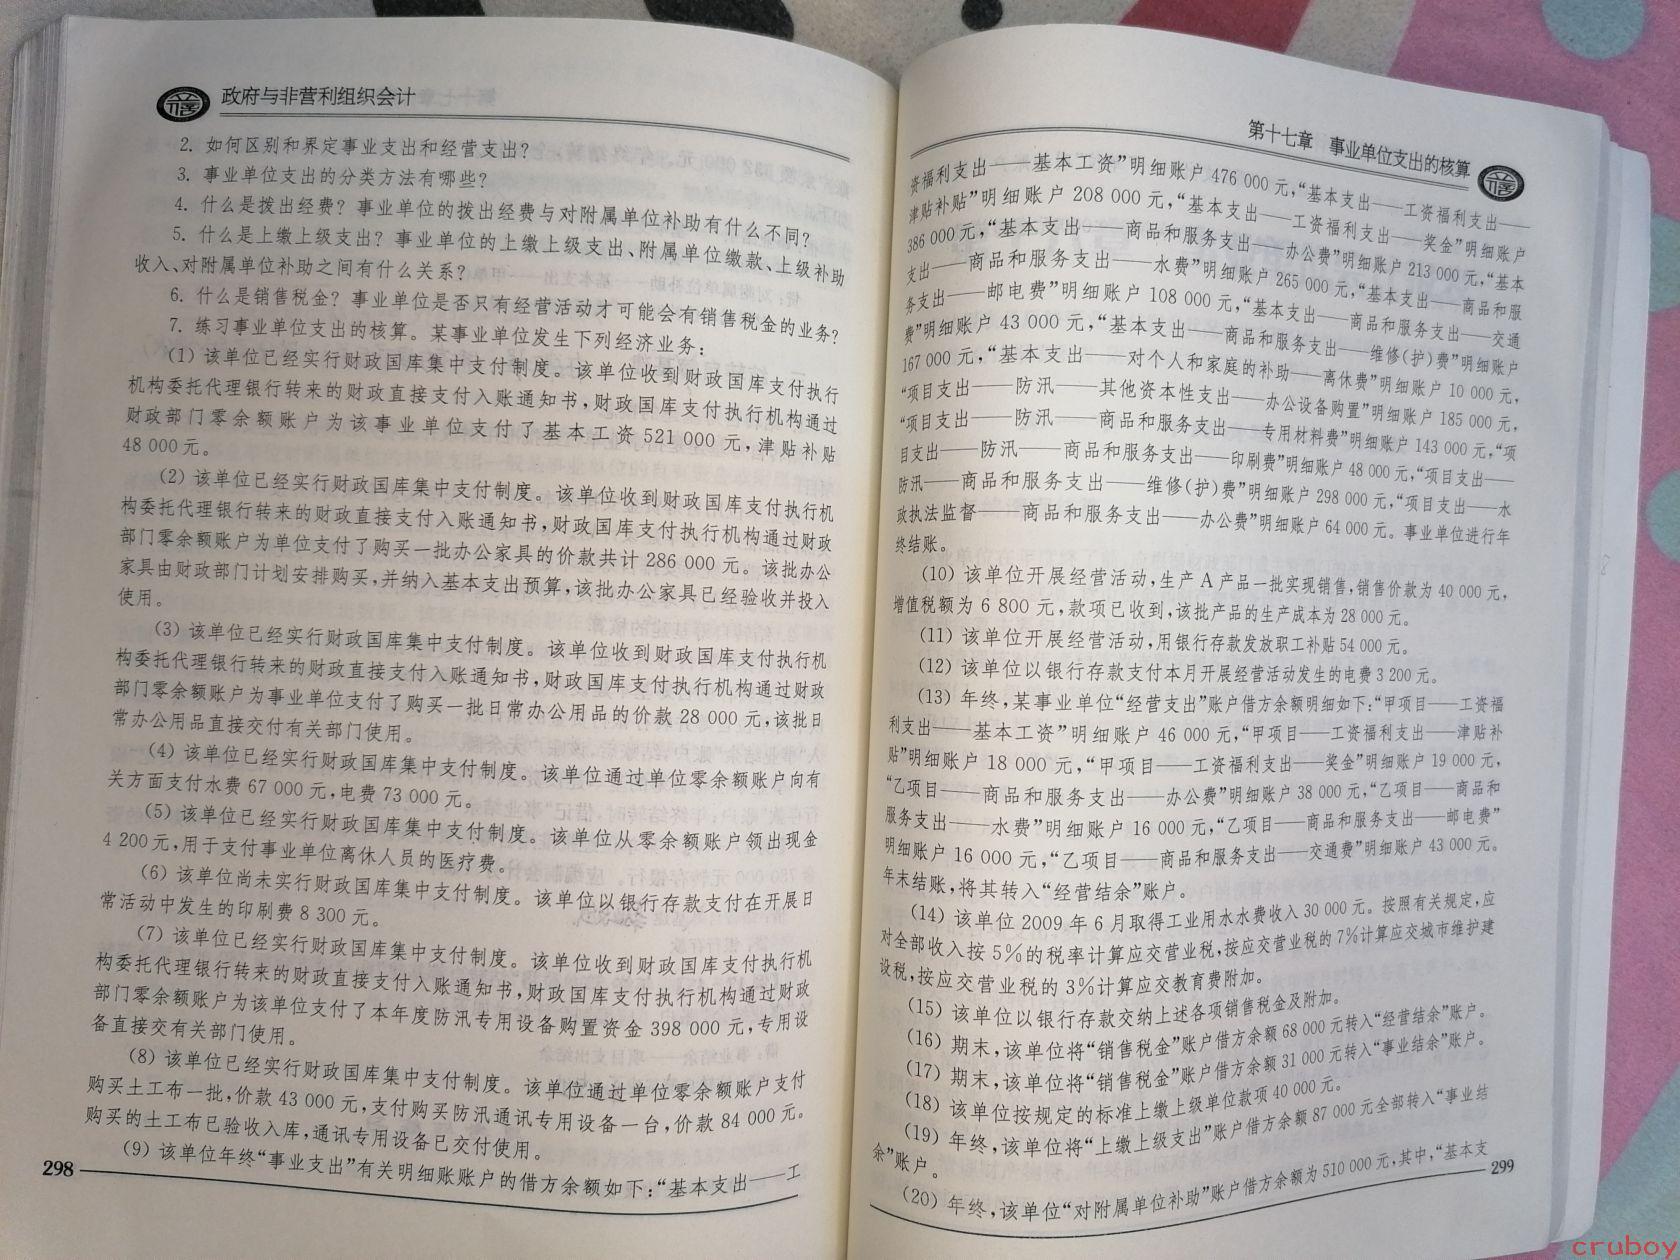 政府与非营利组织会计
2. 如何区别和界定事业支出和经营支出？
3. 事业单位支出的分类方法有哪些？
4. 什么是拨出经费？事业单位的拨出经费与对附属单位补助有什么不同？
5. 什么是上缴上级支出？事业单位的上缴上级支出、附属单位缴款、上级补助
收入、对附属单位补助之间有什么关系？
6. 什么是销售税金？事业单位是否只有经营活动才可能会有销售税金的业务？
7. 练习事业单位支出的核算。某事业单位发生下列经济业务：
(1) 该单位已经实行财政国库集中支付制度。该单位收到财政国库支付执行
机构委托代理银行转来的财政直接支付入账通知书，财政国库支付执行机构通过
财政部门零余额账户为该事业单位支付了基本工资 521 000 元，津贴补贴
48 000 元。
(2) 该单位已经实行财政国库集中支付制度。该单位收到财政国库支付执行机
构委托代理银行转来的财政直接支付入账通知书，财政国库支付执行机构通过财政
部门零余额账户为单位支付了购买一批办公家具的价款共计 286 000 元。该批办公
家具由财政部门计划安排购买，并纳入基本支出预算，该批办公家具已经验收并投入
使用。
(3) 该单位已经实行财政国库集中支付制度。该单位收到财政国库支付执行机
构委托代理银行转来的财政直接支付入账通知书，财政国库支付执行机构通过财政
部门零余额账户为事业单位支付了购买一批日常办公用品的价款 28 000 元，该批日
常办公用品直接交付有关部门使用。
(4) 该单位已经实行财政国库集中支付制度。该单位通过单位零余额账户向有
关方面支付水费 67 000 元，电费 73 000 元。
(5) 该单位已经实行财政国库集中支付制度。该单位从零余额账户领出现金
4 200 元，用于支付事业单位离休人员的医疗费。
(6) 该单位尚未实行财政国库集中支付制度。该单位以银行存款支付在开展日
常活动中发生的印刷费 8 300 元。
(7) 该单位已经实行财政国库集中支付制度。该单位收到财政国库支付执行机
构委托代理银行转来的财政直接支付入账通知书，财政国库支付执行机构通过财政
部门零余额账户为该单位支付了本年度防汛专用设备购置资金 398 000 元，专用设
备直接交有关部门使用。
(8) 该单位已经实行财政国库集中支付制度。该单位通过单位零余额账户支付
购买土工布一批，价款 43 000 元，支付购买防汛通讯专用设备一台，价款 84 000 元。
购买的土工布已验收入库，通讯专用设备已交付使用。
(9) 该单位年终“事业支出”有关明细账账户的借方余额如下：“基本支出——工
298
第十七章 事业单位支出的核算
资福利支出——基本工资”明细账户 476 000 元，“基本支出——工资福利支出——
津贴补贴”明细账户 208 000 元，“基本支出——工资福利支出——奖金”明细账户
386 000 元，“基本支出——商品和服务支出——办公费”明细账户 213 000 元，“基本
支出——商品和服务支出——水费”明细账户 265 000 元，“基本支出——商品和服
务支出——邮电费”明细账户 108 000 元，“基本支出——商品和服务支出——交通
费”明细账户 43 000 元，“基本支出——商品和服务支出——维修(护)费”明细账户
167 000 元，“基本支出——对个人和家庭的补助——离休费”明细账户 10 000 元，
“项目支出——防汛——其他资本性支出——办公设备购置”明细账户 185 000 元，
“项目支出——防汛——商品和服务支出——专用材料费”明细账户 143 000 元，“项
目支出——防汛——商品和服务支出——印刷费”明细账户 48 000 元，“项目支出——
防汛——商品和服务支出——维修(护)费”明细账户 298 000 元，“项目支出——水
政执法监督——商品和服务支出——办公费”明细账户 64 000 元。事业单位进行年
终结账。
(10) 该单位开展经营活动，生产 A 产品一批实现销售，销售价款为 40 000 元，
增值税额为 6 800 元，款项已收到，该批产品的生产成本为 28 000 元。
(11) 该单位开展经营活动，用银行存款发放职工补贴 54 000 元。
(12) 该单位以银行存款支付本月开展经营活动发生的电费 3 200 元。
(13) 年终，某事业单位“经营支出”账户借方余额明细如下：“甲项目——工资福
利支出——基本工资”明细账户 46 000 元，“甲项目——工资福利支出——津贴补
贴”明细账户 18 000 元，“甲项目——工资福利支出——奖金”明细账户 19 000 元，
“乙项目——商品和服务支出——办公费”明细账户 38 000 元，“乙项目——商品和
服务支出——水费”明细账户 16 000 元，“乙项目——商品和服务支出——邮电费”
明细账户 16 000 元，“乙项目——商品和服务支出——交通费”明细账户 43 000 元。
年末结账，将其转入“经营结余”账户。
(14) 该单位 2009 年 6 月取得工业用水水费收入 30 000 元。按照有关规定，应
对全部收入按 5％的税率计算应交营业税，按应交营业税的 7％计算应交城市维护建
设税，按应交营业税的 3％计算应交教育费附加。
(15) 该单位以银行存款交纳上述各项销售税金及附加。
(16) 期末，该单位将“销售税金”账户借方余额 68 000 元转入“经营结余”账户。
(17) 期末，该单位将“销售税金”账户借方余额 31 000 元转入“事业结余”账户。
(18) 该单位按规定的标准上缴上级单位款项 40 000 元。
(19) 年终，该单位将“上缴上级支出”账户借方余额 87 000 元全部转入“事业结
余”账户。
(20) 年终，该单位“对附属单位补助”账户借方余额为 510 000 元，其中，“基本支
299
cruboy